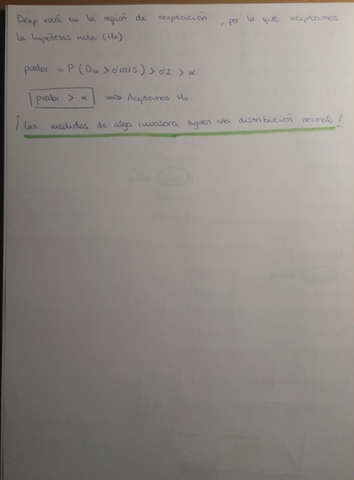 Dexp está en la región de aceptación, por lo que aceptamos
la hipótesis nula (Ho).
pvalor = P (D₁₀ > 0'1015) > 0'2 > α
pvalor > α ⟹ Aceptamos Ho
¡Las medidas de alga invasora siguen una distribución normal!